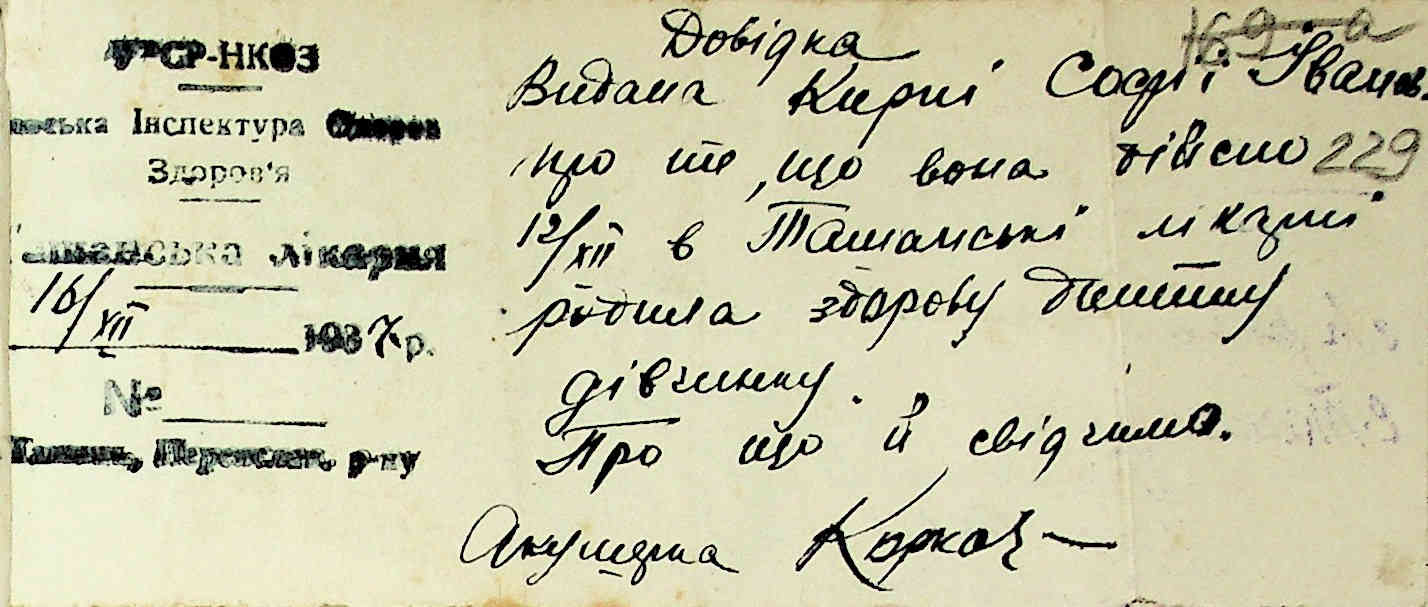 УСР-НКОЗ
Інспектура
Здоров'я
Ташанська лікарня
16/XII 1937 р.
№
Ташань, Переяслав. р-ну
169 а
Довідка
Видана Кирпі Софії Іванов.
про те, що вона дійсно
229
12/XII в Ташанські лікарні
родила здорову дитину
дівчинку.
Про що й свідчимо.
Акушерка